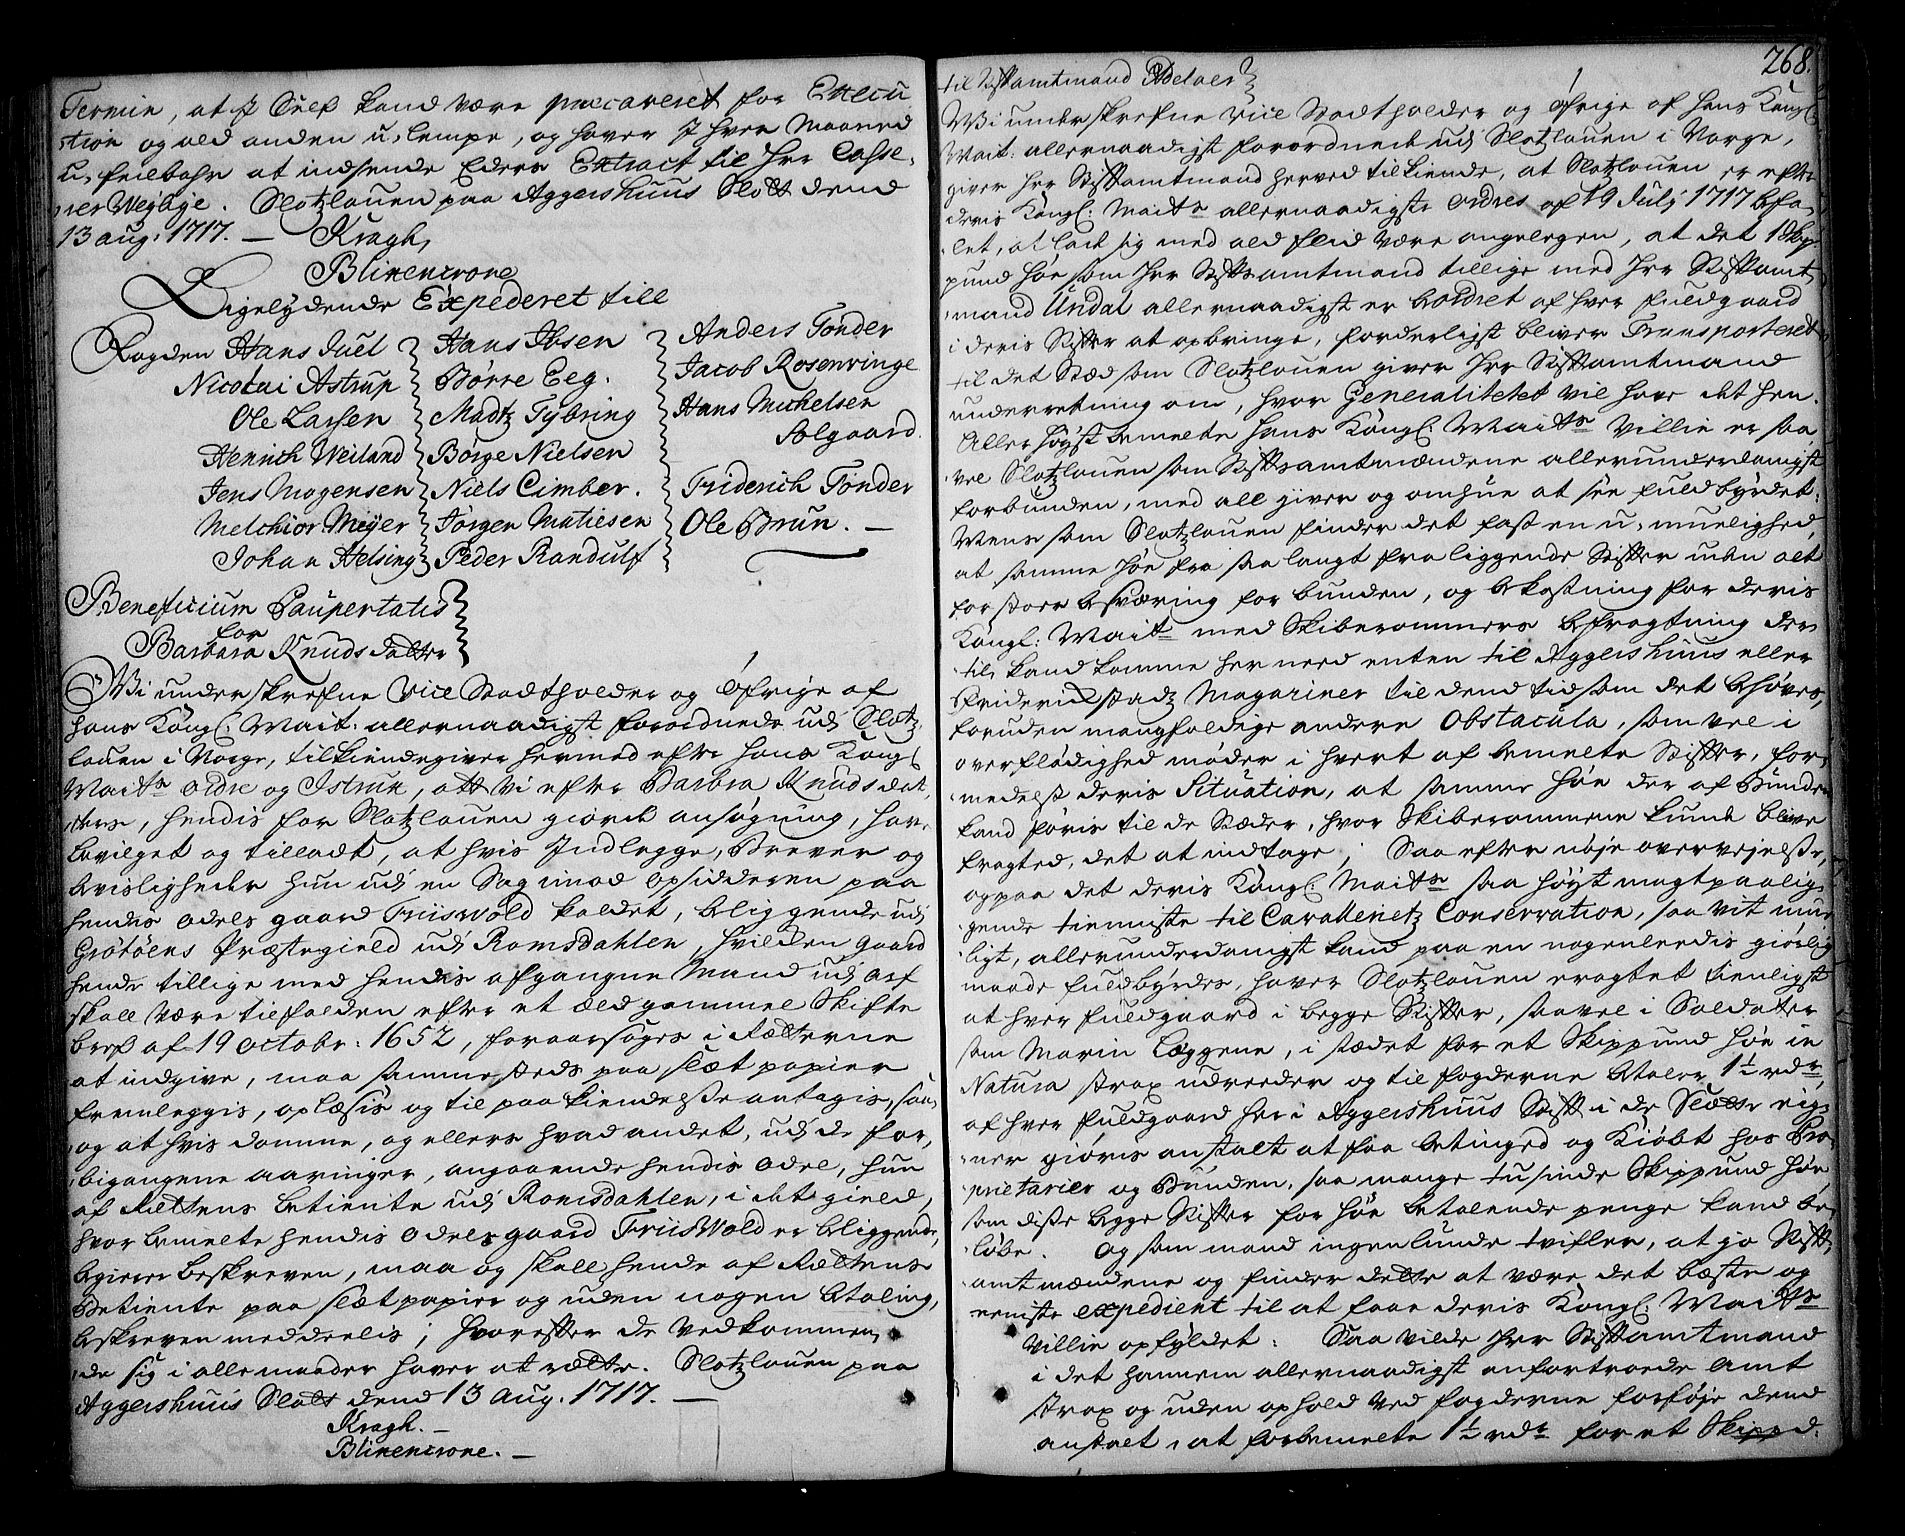 Termin, at I Self kand være præcaveret for Execu
tion og ald anden u-lempe, og haver I hver Maaned
u-feilbahr at indsende Eders Extract til Hr: Casse-
rer Weÿbÿe. Slotzlouen paa Aggershuus Slott dend
13 aug: 1717. — Kragh,
Blixencrone
Ligelydende Expederet till
Fogden Hans Juel
Nicolai Astrup
Ole Larsen
Henrich Weiland
Jens Mogensen
Melchior Meÿer
Johan Helsing
Hans Ibsen
Børre Eeg.
Madtz Tÿbring
Børge Nielsen
Niels Cimber.
Jørgen Matiesen
Peder Randulf
Anders Tønder
Jacob Rosenvinge
Hans Michelsen
Aalgaard.
Friderich Tønder
Ole Brun. —
Beneficium Paupertatis
for
Barbara Knudsdatter
Wi underskrefne Vice Stadtholder og Øfrige af
Hans Kongl: Mait: allernaadigst forordnede udj Slotz-
louen i Norge, tilkiendegiver hermed efter Hans Kongl
Maits ordre og Istrux, att vi efter Barbra Knudsdat-
ters, hendis for Slotzlouen giorde ansøgning, have
bevilget og tilladt, at hvis Indlegge, Brever og
bevisligheder hun udj en Sag imod opsidderen paa
hendes odels gaard Friiswold kaldet, beliggende udj
Grötöens Præstegield udj Romsdahlen, hvilken gaard
hende tillige med hendis afgangne Mand udj arf
skall være tilfalden efter et æld gammel Skifte
bref af 19 octobr: 1652, foraarsages i Rætterne
at indgive, maa sammesteds paa slæt papier
fremleggis, oplæsis og til paakiendelse antagis, saa,
og at hvis domme, og ellers hvad andet, udj de for-
bigangene aaringer, angaaende hendis odel, hun
af Rettens betiente udj Romsdahlen, i det gield,
hvor bemelte hendis Odelsgaard Friiswold er beliggende,
begierer beskreven, maa og skall hende af Rættens
Betiente paa slæt papier og uden nogen betaling,
beskreven meddeelis; hvorefter de Vedkommen-
de sig i alle maader haver at rætte. Slotzlouen paa
Aggershuus Slott dend 13 aug. 1717. —
Kragh. —
Blixencrone. —
268.
til Stiftamtmand Adelaer
Wi underskrefne Vice Stadtholder og Øfrige af Hans Kongl:
Mait: allernaadigst forordnede udj Slotzlouen i Norge,
giver Hr: Stiftamtmand herved tilkiende, at Slotzlouen er efter
deris Kongl: Maits allernaadigste ordres af 19 Julj 1717 befa-
let, at lade sig med ald flid være angelegen, at det 1 skip-
pund høe som Hr: Stiftsamtmand tillige med Hr: Stiftamt-
mand Undal allernaadigst er beordret af hver fuldgaard
i deris Stifter at opbringe, forderligst bliver Transporteret
til det Stæd som Slotzlouen giver Hr: Stiftamtmand
underretning om, hvor Generalitetet vil have det hen.
Aller høyst bemelte Hans Kongl: Maits Villie er saa
vel Slotzlouen som Stiftsamtmændene allerunderdanigst
forbunden, med all iver og omhue at see fuldbyrdet:
Mens som Slotzlouen finder det fast en u-muelighed,
at samme høe fra saa langt fra liggende Stifter uden alt
for stoer besværing for bunden, og bekostning for deris
Kongl: Mait med Skiberommers befragtning der
til, kand komme her need enten til Aggershuus eller
Friderichstadz Magaziner til dend tid som det behøves,
foruden mangfoldige andere Obstacula, som vel i
overflødighed møder i hvert af bemelte Stifter, for-
medelst deris Situation, at samme høe der af Bunden
kand føris til de Stæder, hvor Skiberommene kunde blive
fragted, det at indtage; Saa efter nøje overvejelse,
og paa det deris Kongl: Maits saa høyt magtpaalig-
gende tienniste til Cavalleriets Conservation, saa vit mue
ligt, allerunderdanigst kand paa en nogenleedis giørlig
maade fuldbyrdes, haver Slotzlouen eragtet tienligst
at hver fuldgaard i begge Stifter, saavel i Soldater
som Marin Læggene, i stædet for et Skippund høe in
Natura strax udreeder og til fogderne betaler 1½ rdr,
af hver fuldgaard her i Aggershuus Stift i de Slette eig-
ner giøris anstalt at faae betinged og Kiøbt hos Pro-
prietarier og Bunden, saa mange tusinde Skippund høe,
som disse begge Stifter for høe betalende penge kand be-
løbe. Og som mand ingenlunde tvifler, at jo Stift-
amtmændene og finder dette at være det bæste og
neniste expedient til at faae deris Kongl: Maits
Villie opfyldet: Saa vilde Hr: Stiftamtmand
i det hannem allernaadigst anfortroede Amt
strax og uden ophold ved fogderne forføje dend
anstalt, at forbemelte 1½ rdr for et Skippd.